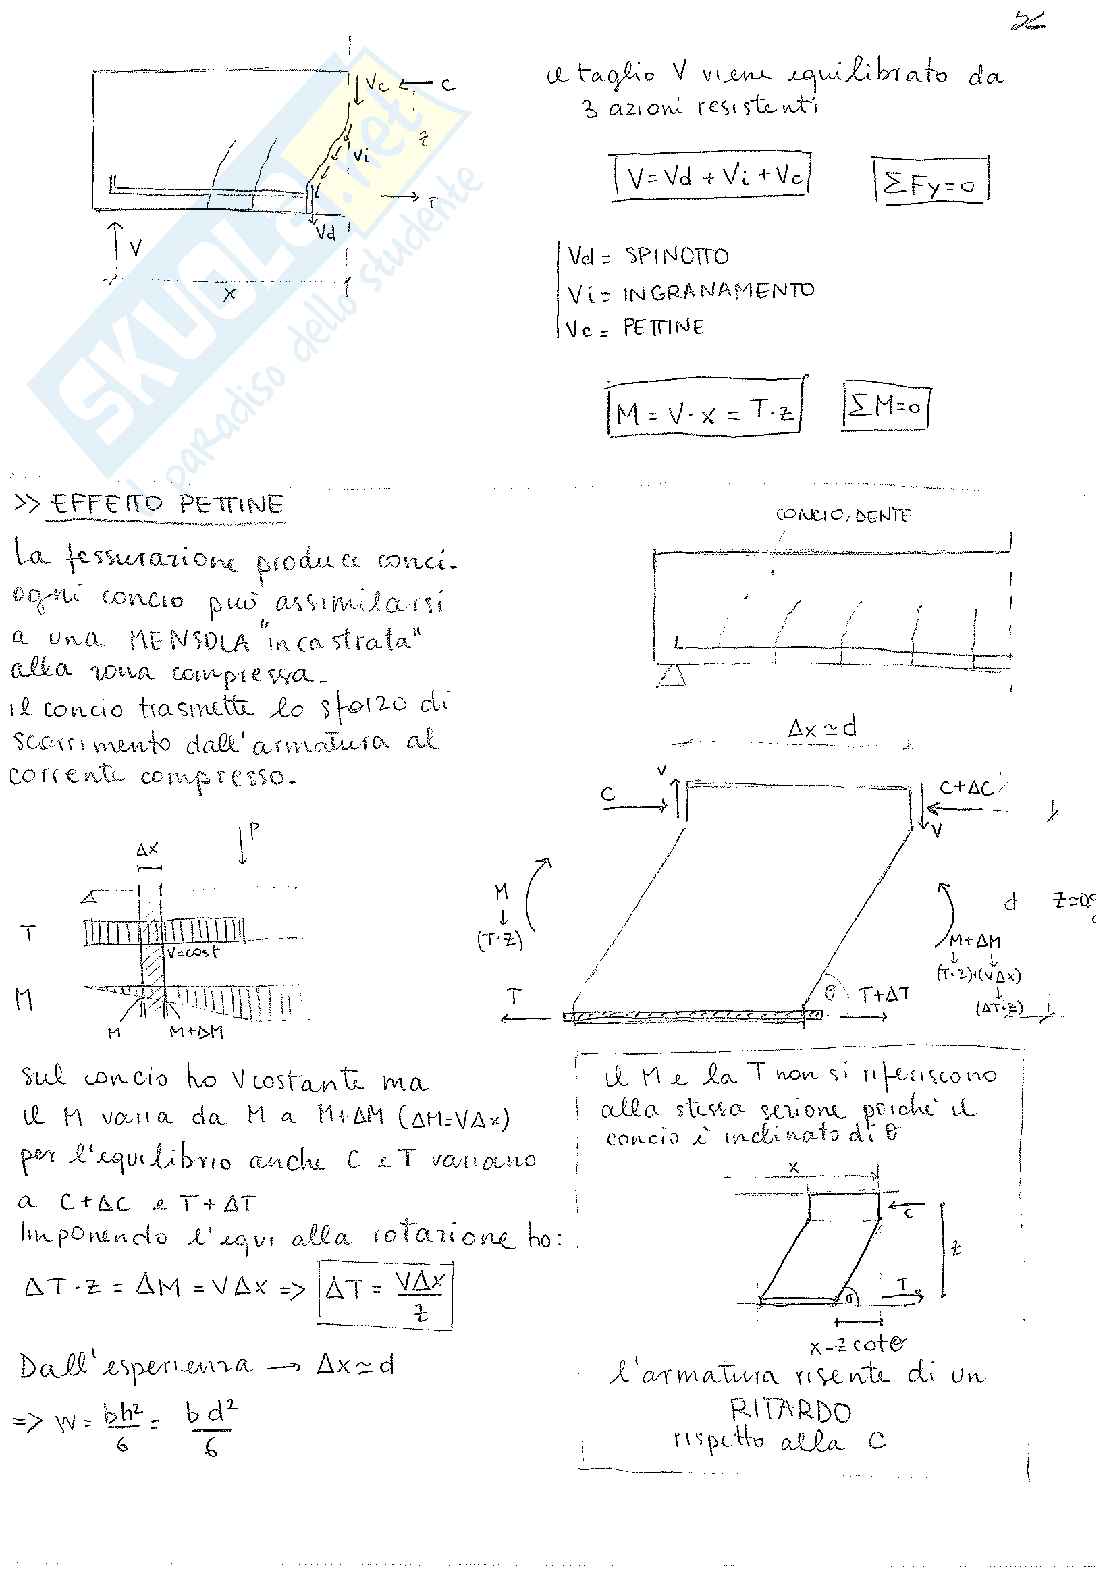 il taglio V viene equilibrato da
3 azioni resistenti
V = Vd + Vi + Vc
ΣFy=0
Vc
C
z
Vi
T
Vd
V
x
Vd = SPINOTTO
Vi = INGRANAMENTO
Vc = PETTINE
M = V·x = T·z
ΣM=0
SKUOLA.net
il paradiso dello studente
>> EFFETTO PETTINE
La fessurazione produce conci.
ogni concio può assimilarsi
a una MENSOLA "incastrata"
alla zona compressa.
il concio trasmette lo sforzo di
scorrimento dall'armatura al
corrente compresso.
CONCIO, DENTE
Δx≃d
C
V
C+ΔC
V
M
(T·z)
d
z=0,9
M+ΔM
(T·z)+(VΔx)
(ΔT·z)
T
θ
T+ΔT
P
Δx
T
V=cost
M
M
M+ΔM
sul concio ho V costante ma
il M varia da M a M+ΔM (ΔM=VΔx)
per l'equilibrio anche C e T variano
a C+ΔC e T+ΔT
Imponendo l'equi alla rotazione ho:
ΔT·z = ΔM = VΔx => ΔT = VΔx/z
Dall'esperienza → Δx≃d
=> W = bh²/6 = bd²/6
il M e la T non si riferiscono
alla stessa sezione poiché il
concio è inclinato di θ
x
C
z
T
θ
x-zcotθ
l'armatura risente di un
RITARDO
rispetto alla C